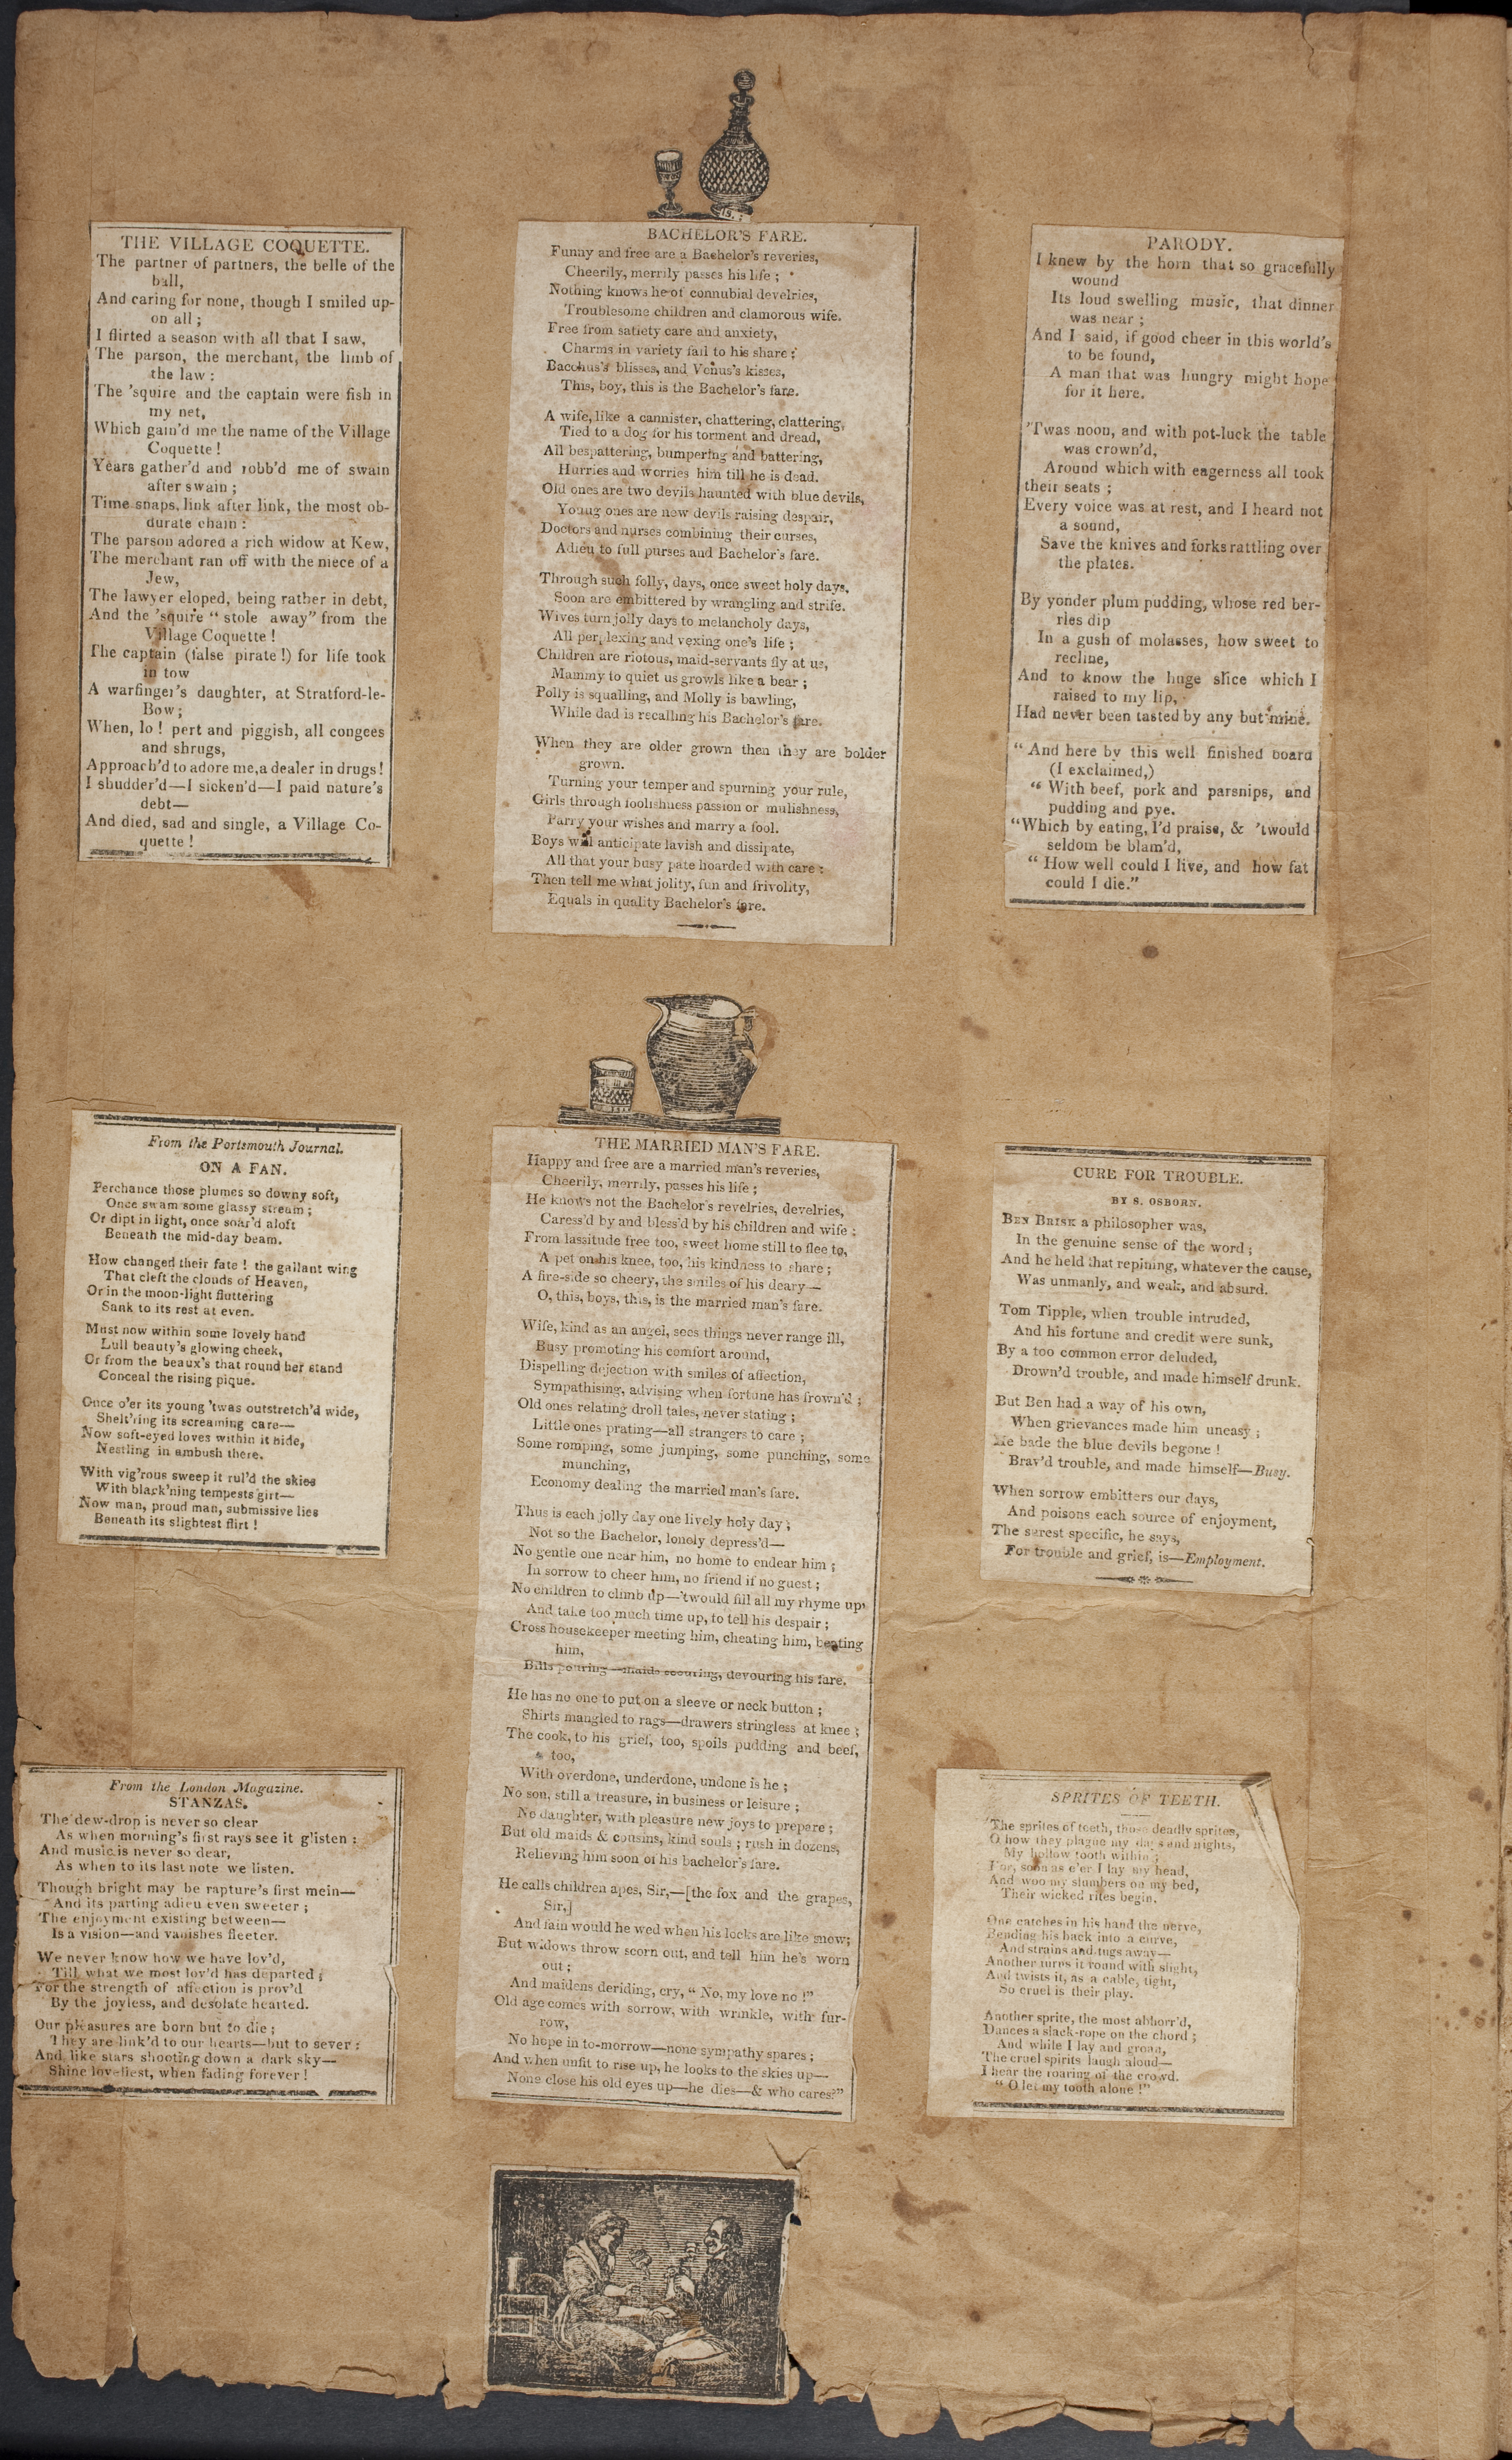 THE VILLAGE COQUETTE.
The partner of partners, the belle of the
ball,
And caring for none, though I smiled up-
on all;
I flirted a season with all that I saw,
The parson, the merchant, the limb of
the law:
The 'squire and the captain were fish in
my net,
Which gain'd me the name of the Village
Coquette!
Years gather'd and robb'd me of swain
after swain;
Time snaps, link after link, the most ob-
durate chain:
The parson adored a rich widow at Kew,
The merchant ran off with the niece of a
Jew,
The lawyer eloped, being rather in debt,
And the 'squire "stole away" from the
Village Coquette!
The captain (false pirate!) for life took
in tow
A warfinger's daughter, at Stratford-le-
Bow;
When, lo! pert and piggish, all congees
and shrugs,
Approach'd to adore me, a dealer in drugs!
I shudder'd—I sicken'd—I paid nature's
debt—
And died, sad and single, a Village Co-
quette!
BACHELOR'S FARE.
Funny and free are a Bachelor's reveries,
Cheerily, merrily passes his life;
Nothing knows he of connubial develries,
Troublesome children and clamorous wife.
Free from satiety care and anxiety,
Charms in variety fall to his share:
Bacchus's blisses, and Venus's kisses,
This, boy, this is the Bachelor's fare.
A wife, like a cannister, chattering, clattering,
Tied to a dog for his torment and dread,
All bespattering, bumpering and battering,
Hurries and worries him till he is dead.
Old ones are two devils haunted with blue devils,
Young ones are new devils raising despair,
Doctors and nurses combining their curses,
Adieu to full purses and Bachelor's fare.
Through such folly, days, once sweet holy days,
Soon are embittered by wrangling and strife.
Wives turn jolly days to melancholy days,
All perplexing and vexing one's life;
Children are riotous, maid-servants fly at us,
Mammy to quiet us growls like a bear;
Polly is squalling, and Molly is bawling,
While dad is recalling his Bachelor's fare.
When they are older grown then they are bolder
grown.
Turning your temper and spurning your rule,
Girls through foolishness passion or mulishness,
Parry your wishes and marry a fool.
Boys will anticipate lavish and dissipate,
All that your busy pate hoarded with care:
Then tell me what jolity, fun and frivolity,
Equals in quality Bachelor's fare.
PARODY.
I knew by the horn that so gracefully
wound
Its loud swelling music, that dinner
was near;
And I said, if good cheer in this world's
to be found,
A man that was hungry might hope
for it here.
'Twas noon, and with pot-luck the table
was crown'd,
Around which with eagerness all took
their seats;
Every voice was at rest, and I heard not
a sound,
Save the knives and forks rattling over
the plates.
By yonder plum pudding, whose red ber-
ries dip
In a gush of molasses, how sweet to
recline,
And to know the huge slice which I
raised to my lip,
Had never been tasted by any but mine.
"And here by this well finished board
(I exclaimed,)
"With beef, pork and parsnips, and
pudding and pye.
"Which by eating, I'd praise, & 'twould
seldom be blam'd,
"How well could I live, and how fat
could I die."
From the Portsmouth Journal.
ON A FAN.
Perchance those plumes so downy soft,
Once swam some glassy stream;
Or dipt in light, once soar'd aloft
Beneath the mid-day beam.
How changed their fate! the gallant wing
That cleft the clouds of Heaven,
Or in the moon-light fluttering
Sunk to its rest at even.
Must now within some lovely hand
Lull beauty's glowing cheek,
Or from the beaux's that round her stand
Conceal the rising pique.
Once o'er its young 'twas outstretch'd wide,
Shelt'ring its screaming care—
Now soft-eyed loves within it hide,
Nestling in ambush there.
With vig'rous sweep it rul'd the skies
With black'ning tempests girt—
Now man, proud man, submissive lies
Beneath its slightest flirt!
THE MARRIED MAN'S FARE.
Happy and free are a married man's reveries,
Cheerily, merrily, passes his life;
He knows not the Bachelor's revelries, develries,
Caress'd by and bless'd by his children and wife:
From lassitude free too, sweet home still to flee to,
A pet on his knee, too, his kindness to share;
A fire-side so cheery, the smiles of his deary—
O, this, boys, this, is the married man's fare.
Wife, kind as an angel, sees things never range ill,
Busy promoting his comfort around,
Dispelling dejection with smiles of affection,
Sympathising, advising when fortune has frown'd;
Old ones relating droll tales, never stating;
Little ones prating—all strangers to care;
Some romping, some jumping, some punching, some
munching,
Economy dealing the married man's fare.
Thus is each jolly day one lively holy day;
Not so the Bachelor, lonely depress'd—
No gentle one near him, no home to endear him;
In sorrow to cheer him, no friend if no guest;
No children to climb up—'twould fill all my rhyme up,
And take too much time up, to tell his despair;
Cross housekeeper meeting him, cheating him, beating
him,
Bills pouring—maids scouring, devouring his fare.
He has no one to put on a sleeve or neck button;
Shirts mangled to rags—drawers stringless at knee;
The cook, to his grief, too, spoils pudding and beef,
too,
With overdone, underdone, undone is he;
No son, still a treasure, in business or leisure;
No daughter, with pleasure new joys to prepare;
But old maids & cousins, kind souls; rush in dozens,
Relieving him soon of his bachelor's fare.
He calls children apes, Sir,—[the fox and the grapes,
Sir,]
And fain would he wed when his locks are like snow;
But widows throw scorn out, and tell him he's worn
out;
And maidens deriding, cry, "No, my love no!"
Old age comes with sorrow, with wrinkle, with fur-
row,
No hope in to-morrow—none sympathy spares;
And when unfit to rise up, he looks to the skies up—
None close his old eyes up—he dies—& who cares?"
CURE FOR TROUBLE.
BY S. OSBORN.
BEN BRISK a philosopher was,
In the genuine sense of the word;
And he held that repining, whatever the cause,
Was unmanly, and weak, and absurd.
Tom Tipple, when trouble intruded,
And his fortune and credit were sunk,
By a too common error deluded,
Drown'd trouble, and made himself drunk.
But Ben had a way of his own,
When grievances made him uneasy;
He bade the blue devils begone!
Brav'd trouble, and made himself—Busy.
When sorrow embitters our days,
And poisons each source of enjoyment,
The surest specific, he says,
For trouble and grief, is—Employment.
From the London Magazine.
STANZAS.
The dew-drop is never so clear
As when morning's first rays see it glisten:
And music is never so dear,
As when to its last note we listen.
Though bright may be rapture's first mein—
And its parting adieu even sweeter;
The enjoyment existing between—
Is a vision—and vanishes fleeter.
We never know how we have lov'd,
Till what we most lov'd has departed;
For the strength of affection is prov'd
By the joyless, and desolate hearted.
Our pleasures are born but to die;
They are link'd to our hearts—but to sever:
And like stars shooting down a dark sky—
Shine loveliest, when fading forever!
SPRITES OF TEETH.
The sprites of teeth, those deadly sprites,
O how they plague my days and nights,
My hollow tooth within;
For, soon as e'er I lay my head,
And woo my slumbers on my bed,
Their wicked rites begin.
One catches in his hand the nerve,
Bending his back into a curve,
And strains and tugs away—
Another turns it round with slight,
And twists it, as a cable, tight,
So cruel is their play.
Another sprite, the most abhorr'd,
Dances a slack-rope on the chord;
And while I lay and groan,
The cruel spirits laugh aloud—
I hear the roaring of the crowd.
"O let my tooth alone!"